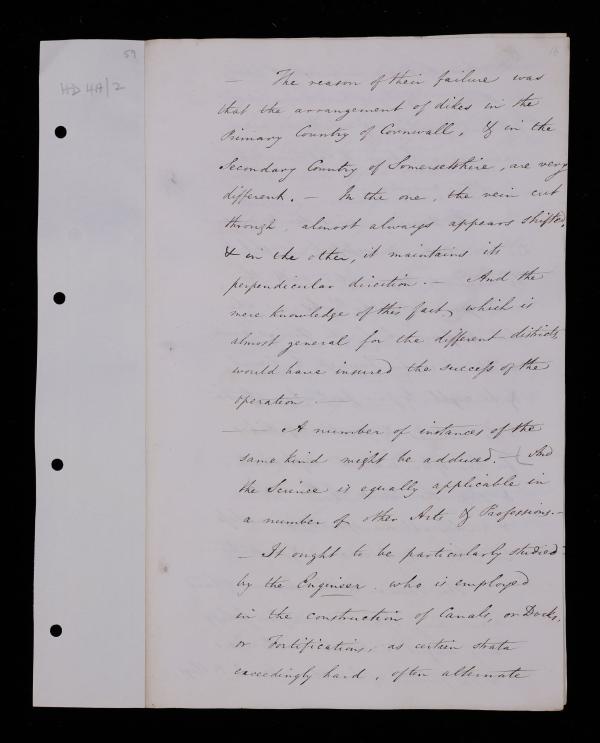 59
HD 4A/2
16
— The reason of their failure was
that the arrangement of dikes in the
Primary Country of Cornwall, & in the
Secondary Country of Somersetshire, are very
different. — In the one, the vein cut
through, almost always appears shifted,
& in the other, it maintains its
perpendicular direction. — And the
mere knowledge of this fact, which is
almost general for the different districts,
would have insured the success of the
operation. —
— A number of instances of the
same kind might be adduced. — } And
the Science is equally applicable in
a number of other Arts & Professions. —
— It ought to be particularly studied
by the Engineer who is employed
in the construction of Canals, or Docks,
or Fortifications, as certain strata
exceedingly hard, often alternate